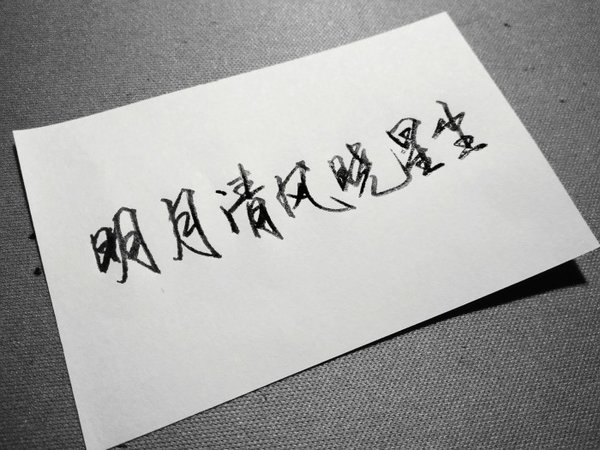 明月清风晓星尘